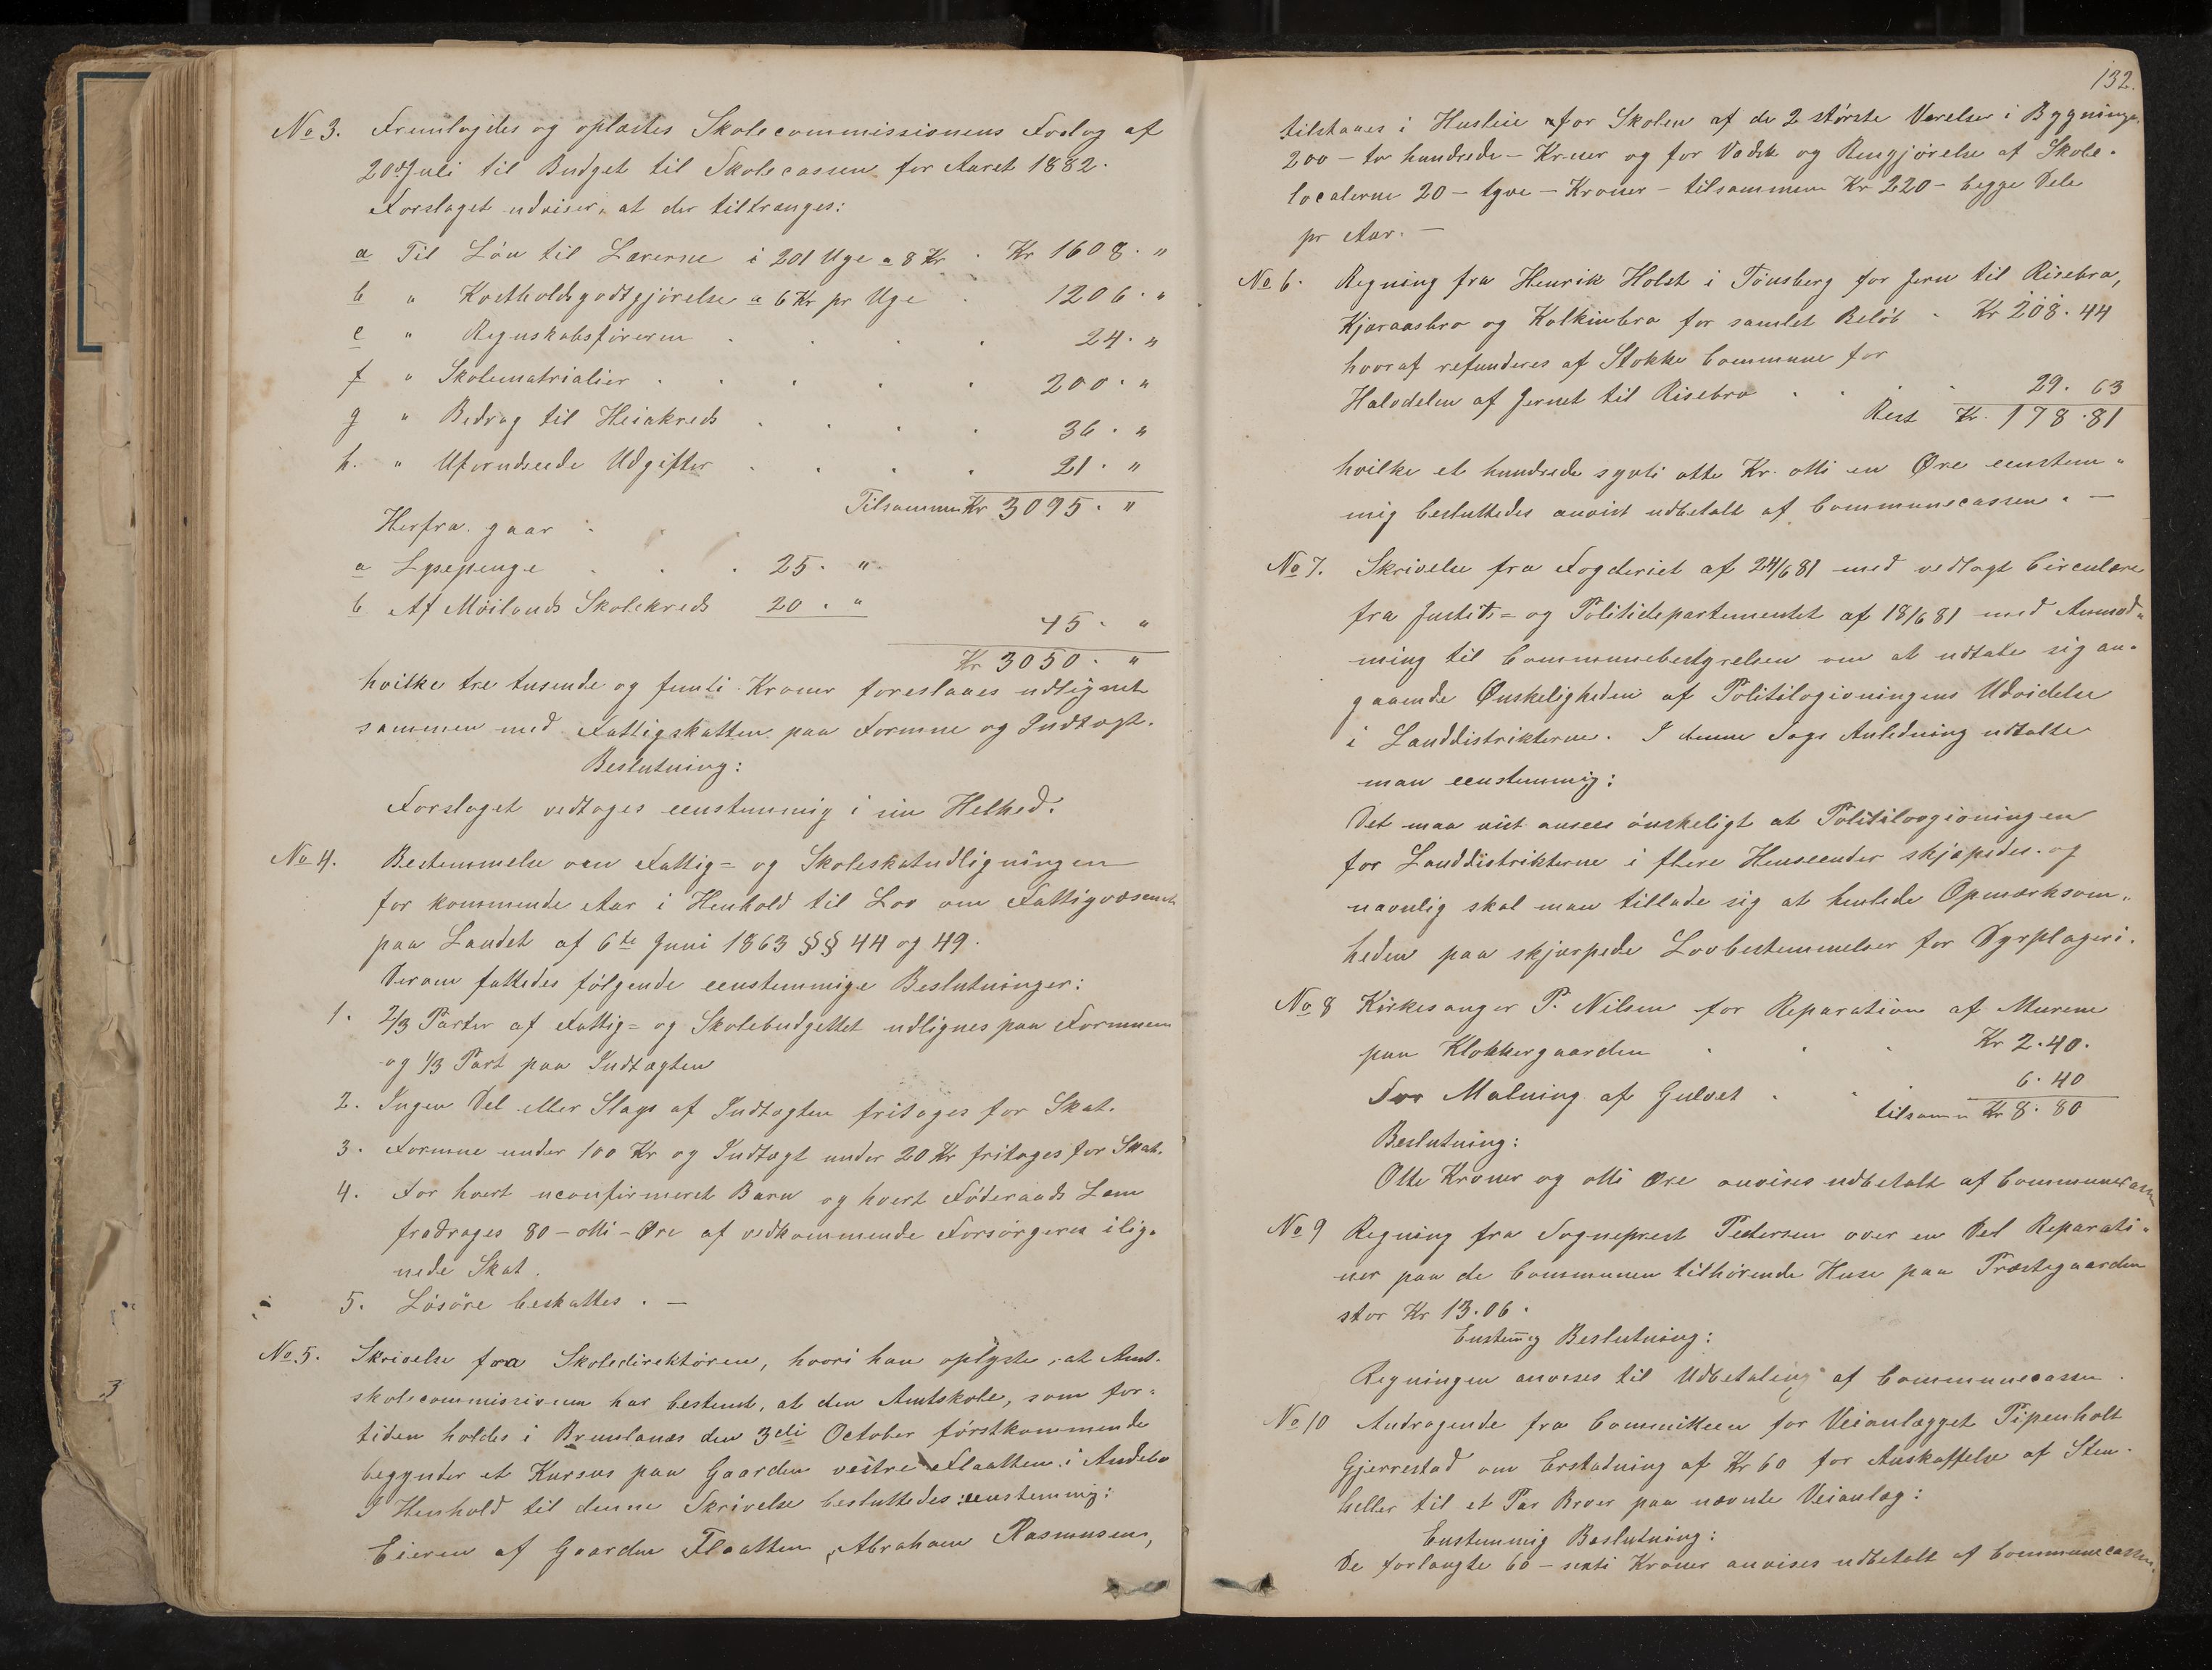 No 3. Fremlagdes og oplæstes Skolecommissionens Forslag af
20de Juli til Budget til Skolecassen for Aaret 1882.
Forslaget udviser, at der tiltrænges:
a Til Løn til Lærerne i 201 Uge a 8 Kr . Kr 1608. "
b " Kostholdsgodtgjørelse a 6 Kr pr Uge . 1206. "
e " Regnskabsføreren . . . . 24. "
f " Skolematrialier . . . . . 200. "
g " Bidrag til Heiakreds . . . . 36. "
h. " Uforudseede Udgifter . . . . 21. "
Tilsammen Kr 3095. "
Herfra gaar .
a Lysepenge . . . 25. "
b Af Møilands Skolekreds 20. "
45. "
Kr 3050. "
hvilke tre tusende og femti Kroner foreslaaes udlignet
sammen med Fattigskatten paa Formue og Indtægt.
Beslutning:
Forslaget vedtages eenstemmig i sin Helhed.
No 4. Bestemmelse om Fattig= og Skoleskatudligningen
for kommende Aar i Henhold til Lov om Fattigvæsenet
paa Landet af 6te Juni 1863 §§ 44 og 49.
Derom fattedes følgende eenstemmige Beslutninger:
1. 2/3 Parter af Fattig= og Skolebudgettet udlignes paa Formuen
og 1/3 Part paa Indtægten
2. Ingen Del eller Slags af Indtægten fritages for Skat.
3. Formue under 100 Kr og Indtægt under 20 Kr fritages for Skat.
4. For hvert uconfirmeret Barn og hvert Føderaads Lem
fradrages 80 - otti - Øre af vedkommende Forsørgeres ilig=
nede Skat.
5. Løsøre beskattes. —
No 5. Skrivelse fra Skoledirektøren, hvori han oplyste, at Amt=
skolecommissionen har bestemt, at den Amtskole, som for=
tiden holdes i Brunlanæs den 3die October førstkommende
begynder et Kursus paa Gaarden vestre Flaatten i Andebo
I Henhold til denne Skrivelse besluttedes eenstemmig:
Eieren af Gaarden Flaatten, Abraham Rasmusen,
132.
tilstaaes i Husleie for Skolen af de 2 største Værelser i Bygningen
200 - to hundrede - Kroner og for Vadsk og Rengjørelse af Skole=
localerne 20 - tyve - Kroner - tilsammen Kr 220 - begge Dele
pr Aar. —
No 6. Regning fra Henrik Holst i Tønsberg for Jern til Risebro,
Kjæraasbro og Kolkinbro for samlet Beløb . Kr 208. 44
hvoraf refunderes af Stokke Commune for
Halvdelen af Jernet til Risebro . . . 29. 63
Rest Kr. 178. 81
hvilke et hundrede sytti otte Kr. otti en Øre eenstem=
mig besluttedes anvist udbetalt af Communecassen. —
No 7. Skrivelse fra Fogderiet af 24/6 81 med vedlagt Circulære
fra Justits= og Politidepartementet af 18/6 81 med Anmod=
ning til Communebestyrelsen om at udtale sig an=
gaaende Ønskeligheden af Politilogivningens Udvidelse
i Landdistrikterne. I denne Sags Anledning udtalte
man eenstemmig:
Det maa vist ansees ønskeligt at Politilovgivningen
for Landdistrikterne i flere Henseender skjærpedes og
navnlig skal man tillade sig at henlede Opmærksom=
heden paa skjærpede Lovbestemmelser for Dyrplageri.
No 8 Kirkesanger P. Nilsen for Reparation af Murene
paa Klokkergaarden . . . Kr 2.40.
For Malning af Gulvet . . 6. 40
tilsamm Kr 8. 80
Beslutning:
Otte Kroner og otti Øre anvises udbetalt af Communecassen
No 9 Regning fra Sogneprest Pedersen over en Del Reparati=
ner paa de Communen tilhørende Huse paa Præstegaarden
stor Kr 13.06.
Enstemmig Beslutning:
Regningen anvises til Udbetaling af Communecassen.
No 10 Andragende fra Committeen for Veianlægget Pipenholt
Gjerrestad om Erstatning af Kr 60 for Anskaffelse af Sten=
heller til et Par Broer paa nævnte Veianlæg:
Enstemmig Beslutning:
De forlangte 60 - sexti Kroner anvises udbetalt af Communecassen.